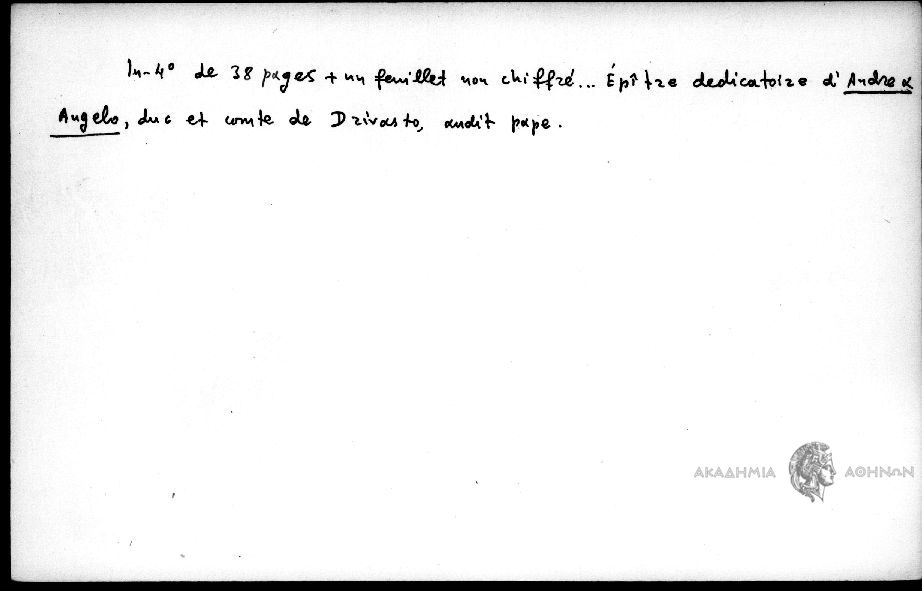 In-4° de 38 pages + un feuillet non chiffré... Épître dedicatoire d'Andrea
Angelo, duc et comte de Drivasto, audit pape.
ΑΚΑΔΗΜΙΑ ΑΘΗΝΩΝ